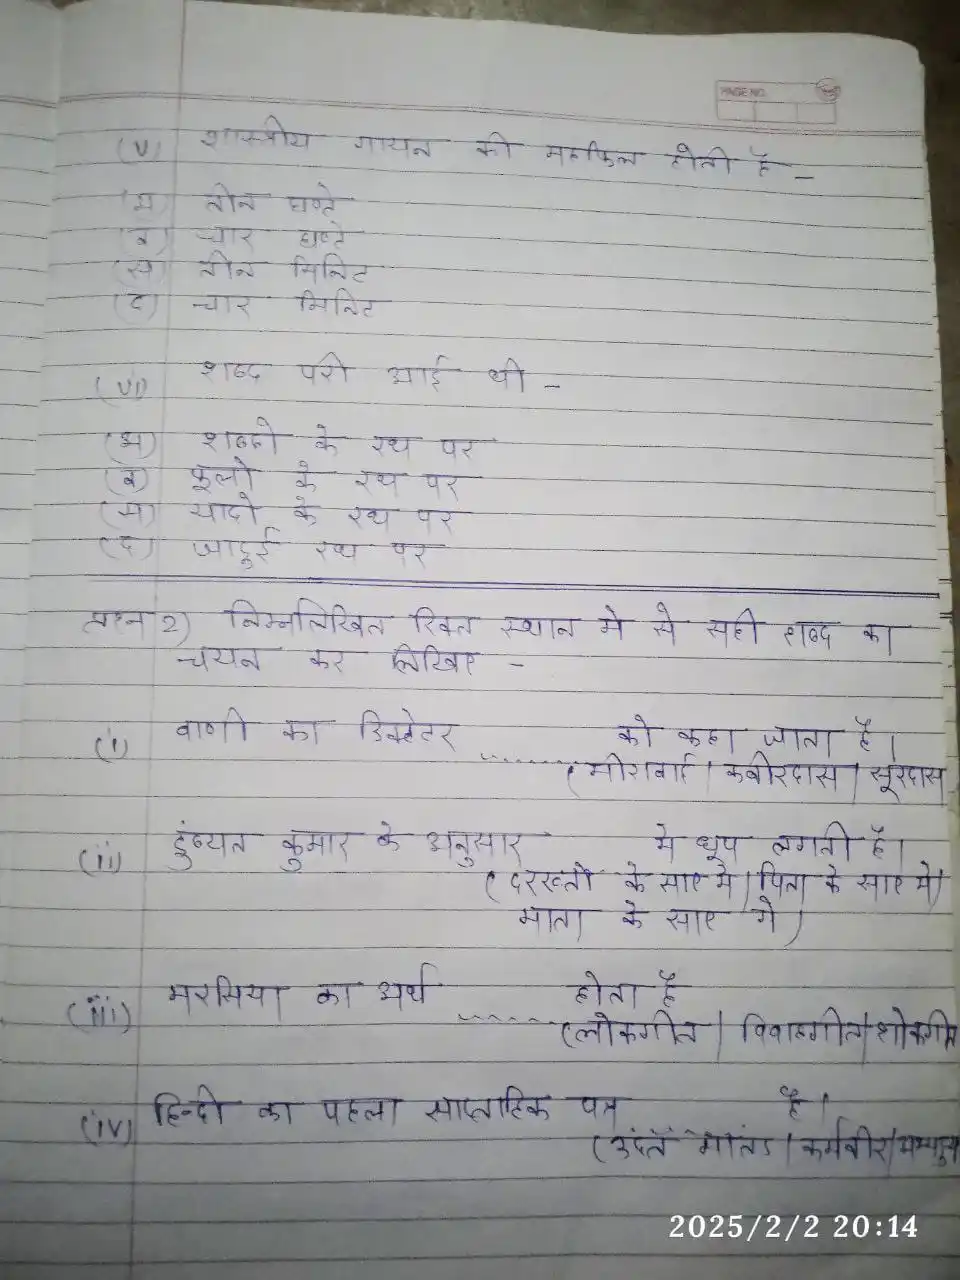 PAGE NO.
(v) शास्त्रीय गायन की महफिल होती है -
(अ) तीन घण्टे
(ब) चार घण्टे
(स) तीन मिनिट
(द) चार मिनिट
(vi) शब्द परी आई थी -
(अ) शब्दो के रथ पर
(ब) फूलो के रथ पर
(स) यादो के रथ पर
(द) जादुई रथ पर
प्रश्न 2) निम्नलिखित रिक्त स्थान मे से सही शब्द का
चयन कर लिखिए -
(i) वाणी का डिक्टेटर ........ को कहा जाता है।
(मीराबाई / कबीरदास / सूरदास
(ii) दुष्यत कुमार के अनुसार मे धूप लगती है।
(दरख्तो के साए मे / पिता के साए मे /
माता के साए मे)
(iii) मरसिया का अर्थ ........ होता है
(लोकगीत / विवाहगीत / शोकगीत
(iv) हिन्दी का पहला साप्ताहिक पत्र है।
(उदंत मार्तंड / कर्मवीर /
2025/2/2 20:14